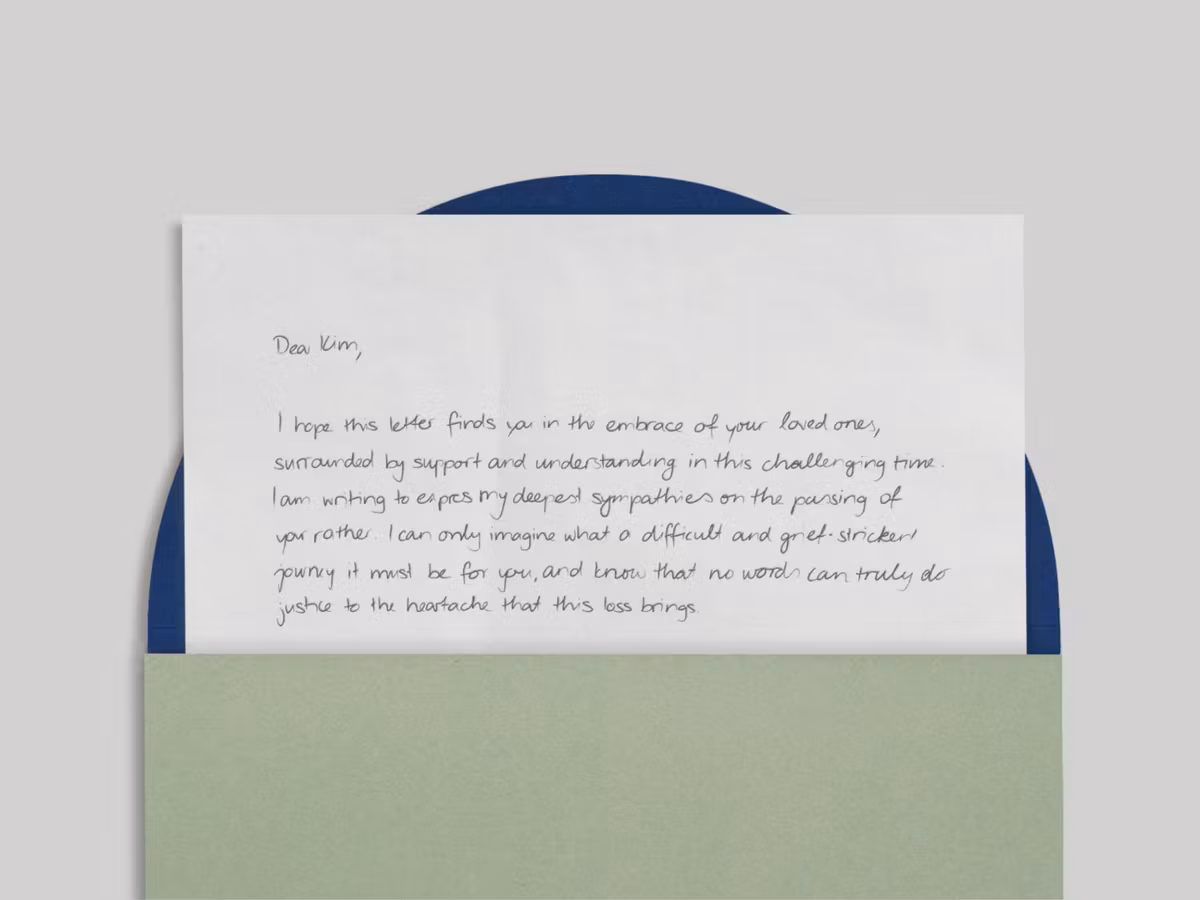 Dear Kim,
I hope this letter finds you in the embrace of your loved ones,
surrounded by support and understanding in this challenging time.
I am writing to expres my deepest sympathies on the passing of
your father. I can only imagine what a difficult and grief-stricken
journey it must be for you, and know that no words can truly do
justice to the heartache that this loss brings.